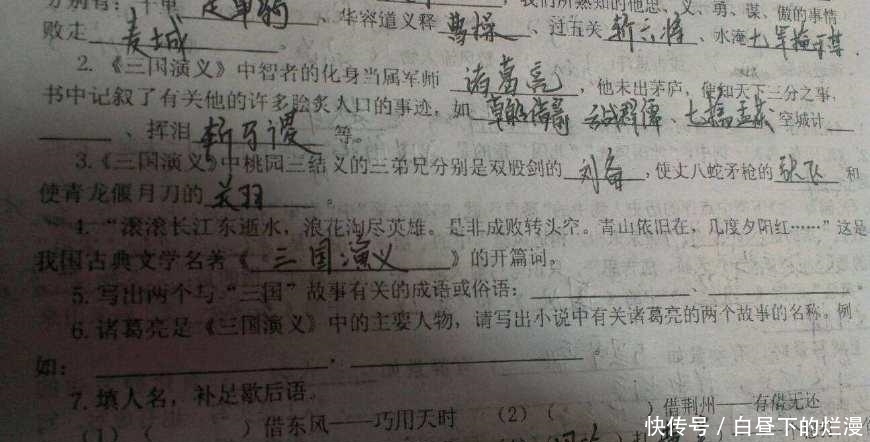 我们所熟知的他忠、义、勇、谋、傲的事情
败走 麦城 。 华容道义释 曹操 、过五关 斩六将 、水淹七军
2.《三国演义》中智者的化身当属军师 诸葛亮 ,他未出茅庐,便知天下三分之事,
书中记叙了有关他的许多脍炙人口的事迹,如 草船借箭 舌战群儒 、七擒孟获 空城计
、挥泪 斩马谡 等。
3.《三国演义》中桃园三结义的三弟兄分别是双股剑的 刘备 ,使丈八蛇矛枪的 张飞 和
使青龙偃月刀的 关羽 。
4.“滚滚长江东逝水,浪花淘尽英雄。是非成败转头空。青山依旧在,几度夕阳红……”这是
我国古典文学名著《 三国演义 》的开篇词。
5.写出两个与“三国”故事有关的成语或俗语: 、
6.诸葛亮是《三国演义》中的主要人物,请写出小说中有关诸葛亮的两个故事的名称,例
如: . 。
7.填人名,补足歇后语。
(1)( )借东风——巧用天时 (2)( )借荆州——有借无还
快传号 / 白昼下的烂漫